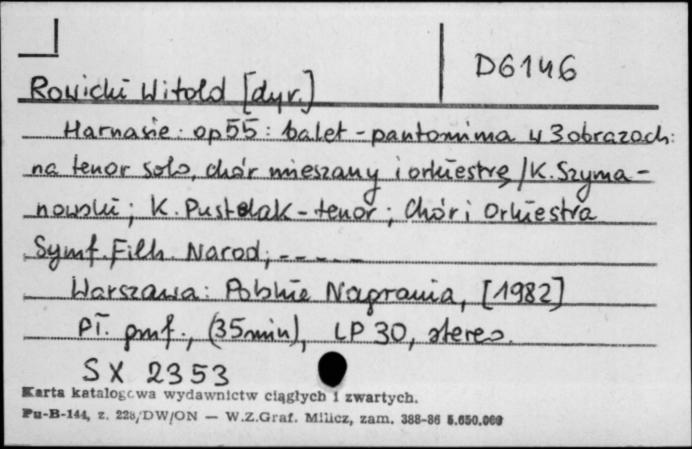 D6146
Rowicki Witold [dyr.]
Harnasie : op 55 : balet - pantomima w 3 obrazach :
na tenor solo, chór mieszany i orkiestrę / K. Szyma-
nowski ; K. Pustelak - tenor ; Chór i Orkiestra
Symf. Filh. Narod ; - - - - -
Warszawa : Polskie Nagrania, [1982]
Pł. gmf., (35 min), LP 30, stereo.
SX 2353
Karta katalogowa wydawnictw ciągłych i zwartych.
Pu-B-144, z. 228/DW/ON — W.Z.Graf. Milicz, zam. 388-86 5.650.000